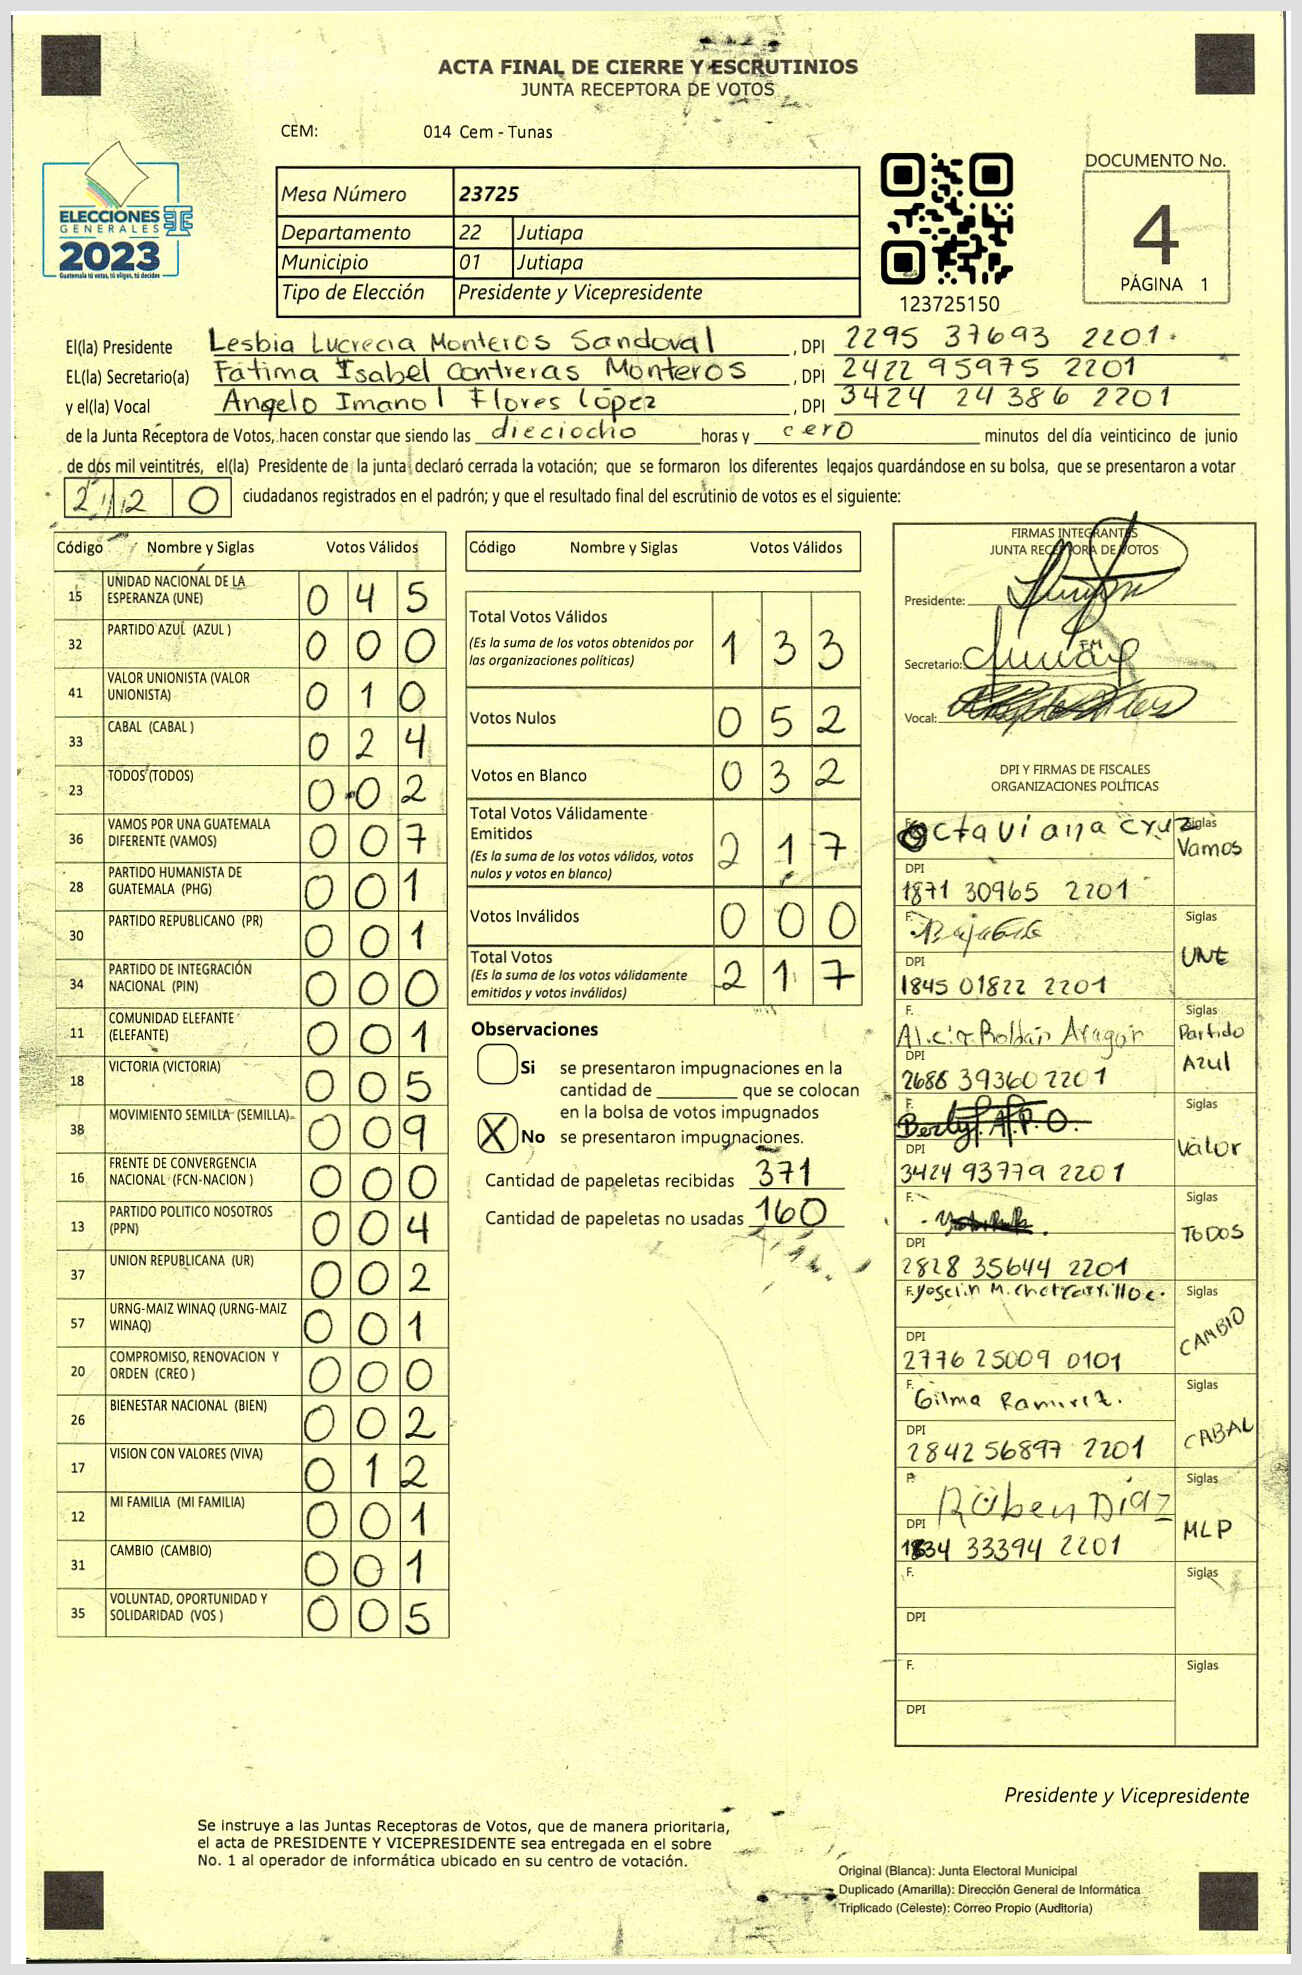 ACTA FINAL DE CIERRE Y ESCRUTINIOS
JUNTA RECEPTORA DE VOTOS
CEM: 014 Cem - Tunas
ELECCIONES
GENERALES
2023
Guatemala tú votas, tú eliges, tú decides
Mesa Número 23725
Departamento 22 Jutiapa
Municipio 01 Jutiapa
Tipo de Elección Presidente y Vicepresidente
123725150
DOCUMENTO No.
4
PÁGINA 1
El(la) Presidente Lesbia Lucrecia Monteros Sandoval , DPI 2295 37693 2201
EL(la) Secretario(a) Fátima Isabel Contreras Monteros , DPI 2422 95975 2201
y el(la) Vocal Angelo Imanol Flores López , DPI 3424 24386 2201
de la Junta Receptora de Votos, hacen constar que siendo las dieciocho horas y cero minutos del día veinticinco de junio
de dos mil veintitrés, el(la) Presidente de la junta declaró cerrada la votación; que se formaron los diferentes legajos quardándose en su bolsa, que se presentaron a votar
2 12 0 ciudadanos registrados en el padrón; y que el resultado final del escrutinio de votos es el siguiente:
Código Nombre y Siglas Votos Válidos
15 UNIDAD NACIONAL DE LA ESPERANZA (UNE) 0 4 5
32 PARTIDO AZUL (AZUL ) 0 0 0
41 VALOR UNIONISTA (VALOR UNIONISTA) 0 1 0
33 CABAL (CABAL ) 0 2 4
23 TODOS (TODOS) 0 0 2
36 VAMOS POR UNA GUATEMALA DIFERENTE (VAMOS) 0 0 7
28 PARTIDO HUMANISTA DE GUATEMALA (PHG) 0 0 1
30 PARTIDO REPUBLICANO (PR) 0 0 1
34 PARTIDO DE INTEGRACIÓN NACIONAL (PIN) 0 0 0
11 COMUNIDAD ELEFANTE (ELEFANTE) 0 0 1
18 VICTORIA (VICTORIA) 0 0 5
38 MOVIMIENTO SEMILLA (SEMILLA) 0 0 9
16 FRENTE DE CONVERGENCIA NACIONAL (FCN-NACION ) 0 0 0
13 PARTIDO POLITICO NOSOTROS (PPN) 0 0 4
37 UNION REPUBLICANA (UR) 0 0 2
57 URNG-MAIZ WINAQ (URNG-MAIZ WINAQ) 0 0 1
20 COMPROMISO, RENOVACION Y ORDEN (CREO ) 0 0 0
26 BIENESTAR NACIONAL (BIEN) 0 0 2
17 VISION CON VALORES (VIVA) 0 1 2
12 MI FAMILIA (MI FAMILIA) 0 0 1
31 CAMBIO (CAMBIO) 0 0 1
35 VOLUNTAD, OPORTUNIDAD Y SOLIDARIDAD (VOS ) 0 0 5
Código Nombre y Siglas Votos Válidos
Total Votos Válidos 1 3 3
(Es la suma de los votos obtenidos por
las organizaciones políticas)
Votos Nulos 0 5 2
Votos en Blanco 0 3 2
Total Votos Válidamente
Emitidos 2 1 7
(Es la suma de los votos válidos, votos
nulos y votos en blanco)
Votos Inválidos 0 0 0
Total Votos 2 1 7
(Es la suma de los votos válidamente
emitidos y votos inválidos)
Observaciones
Si se presentaron impugnaciones en la
cantidad de ________ que se colocan
en la bolsa de votos impugnados
X No se presentaron impugnaciones.
Cantidad de papeletas recibidas 371
Cantidad de papeletas no usadas 160
FIRMAS INTEGRANTES
JUNTA RECEPTORA DE VOTOS
Presidente:
Secretario:
Vocal:
DPI Y FIRMAS DE FISCALES
ORGANIZACIONES POLÍTICAS
F. Octaviana Cruz Siglas Vamos
DPI 1871 30965 2201
F. Siglas UNE
DPI 1845 01822 2201
F. Alicia Roldán Aragón Siglas Partido Azul
DPI 2686 39360 2201
F. Berly A.P.O. Siglas Valor
DPI 3424 93779 2201
F. Siglas TODOS
DPI 2828 35644 2201
F. Yoselin M. Siglas CAMBIO
DPI 2776 25009 0101
F. Gilma Ramirez. Siglas CABAL
DPI 2842 56897 2201
F. Rúben Díaz Siglas MLP
DPI 1834 33394 2201
F. Siglas
DPI
F. Siglas
DPI
Presidente y Vicepresidente
Se instruye a las Juntas Receptoras de Votos, que de manera prioritaria,
el acta de PRESIDENTE Y VICEPRESIDENTE sea entregada en el sobre
No. 1 al operador de informática ubicado en su centro de votación.
Original (Blanca): Junta Electoral Municipal
Duplicado (Amarilla): Dirección General de Informática
Triplicado (Celeste): Correo Propio (Auditoría)